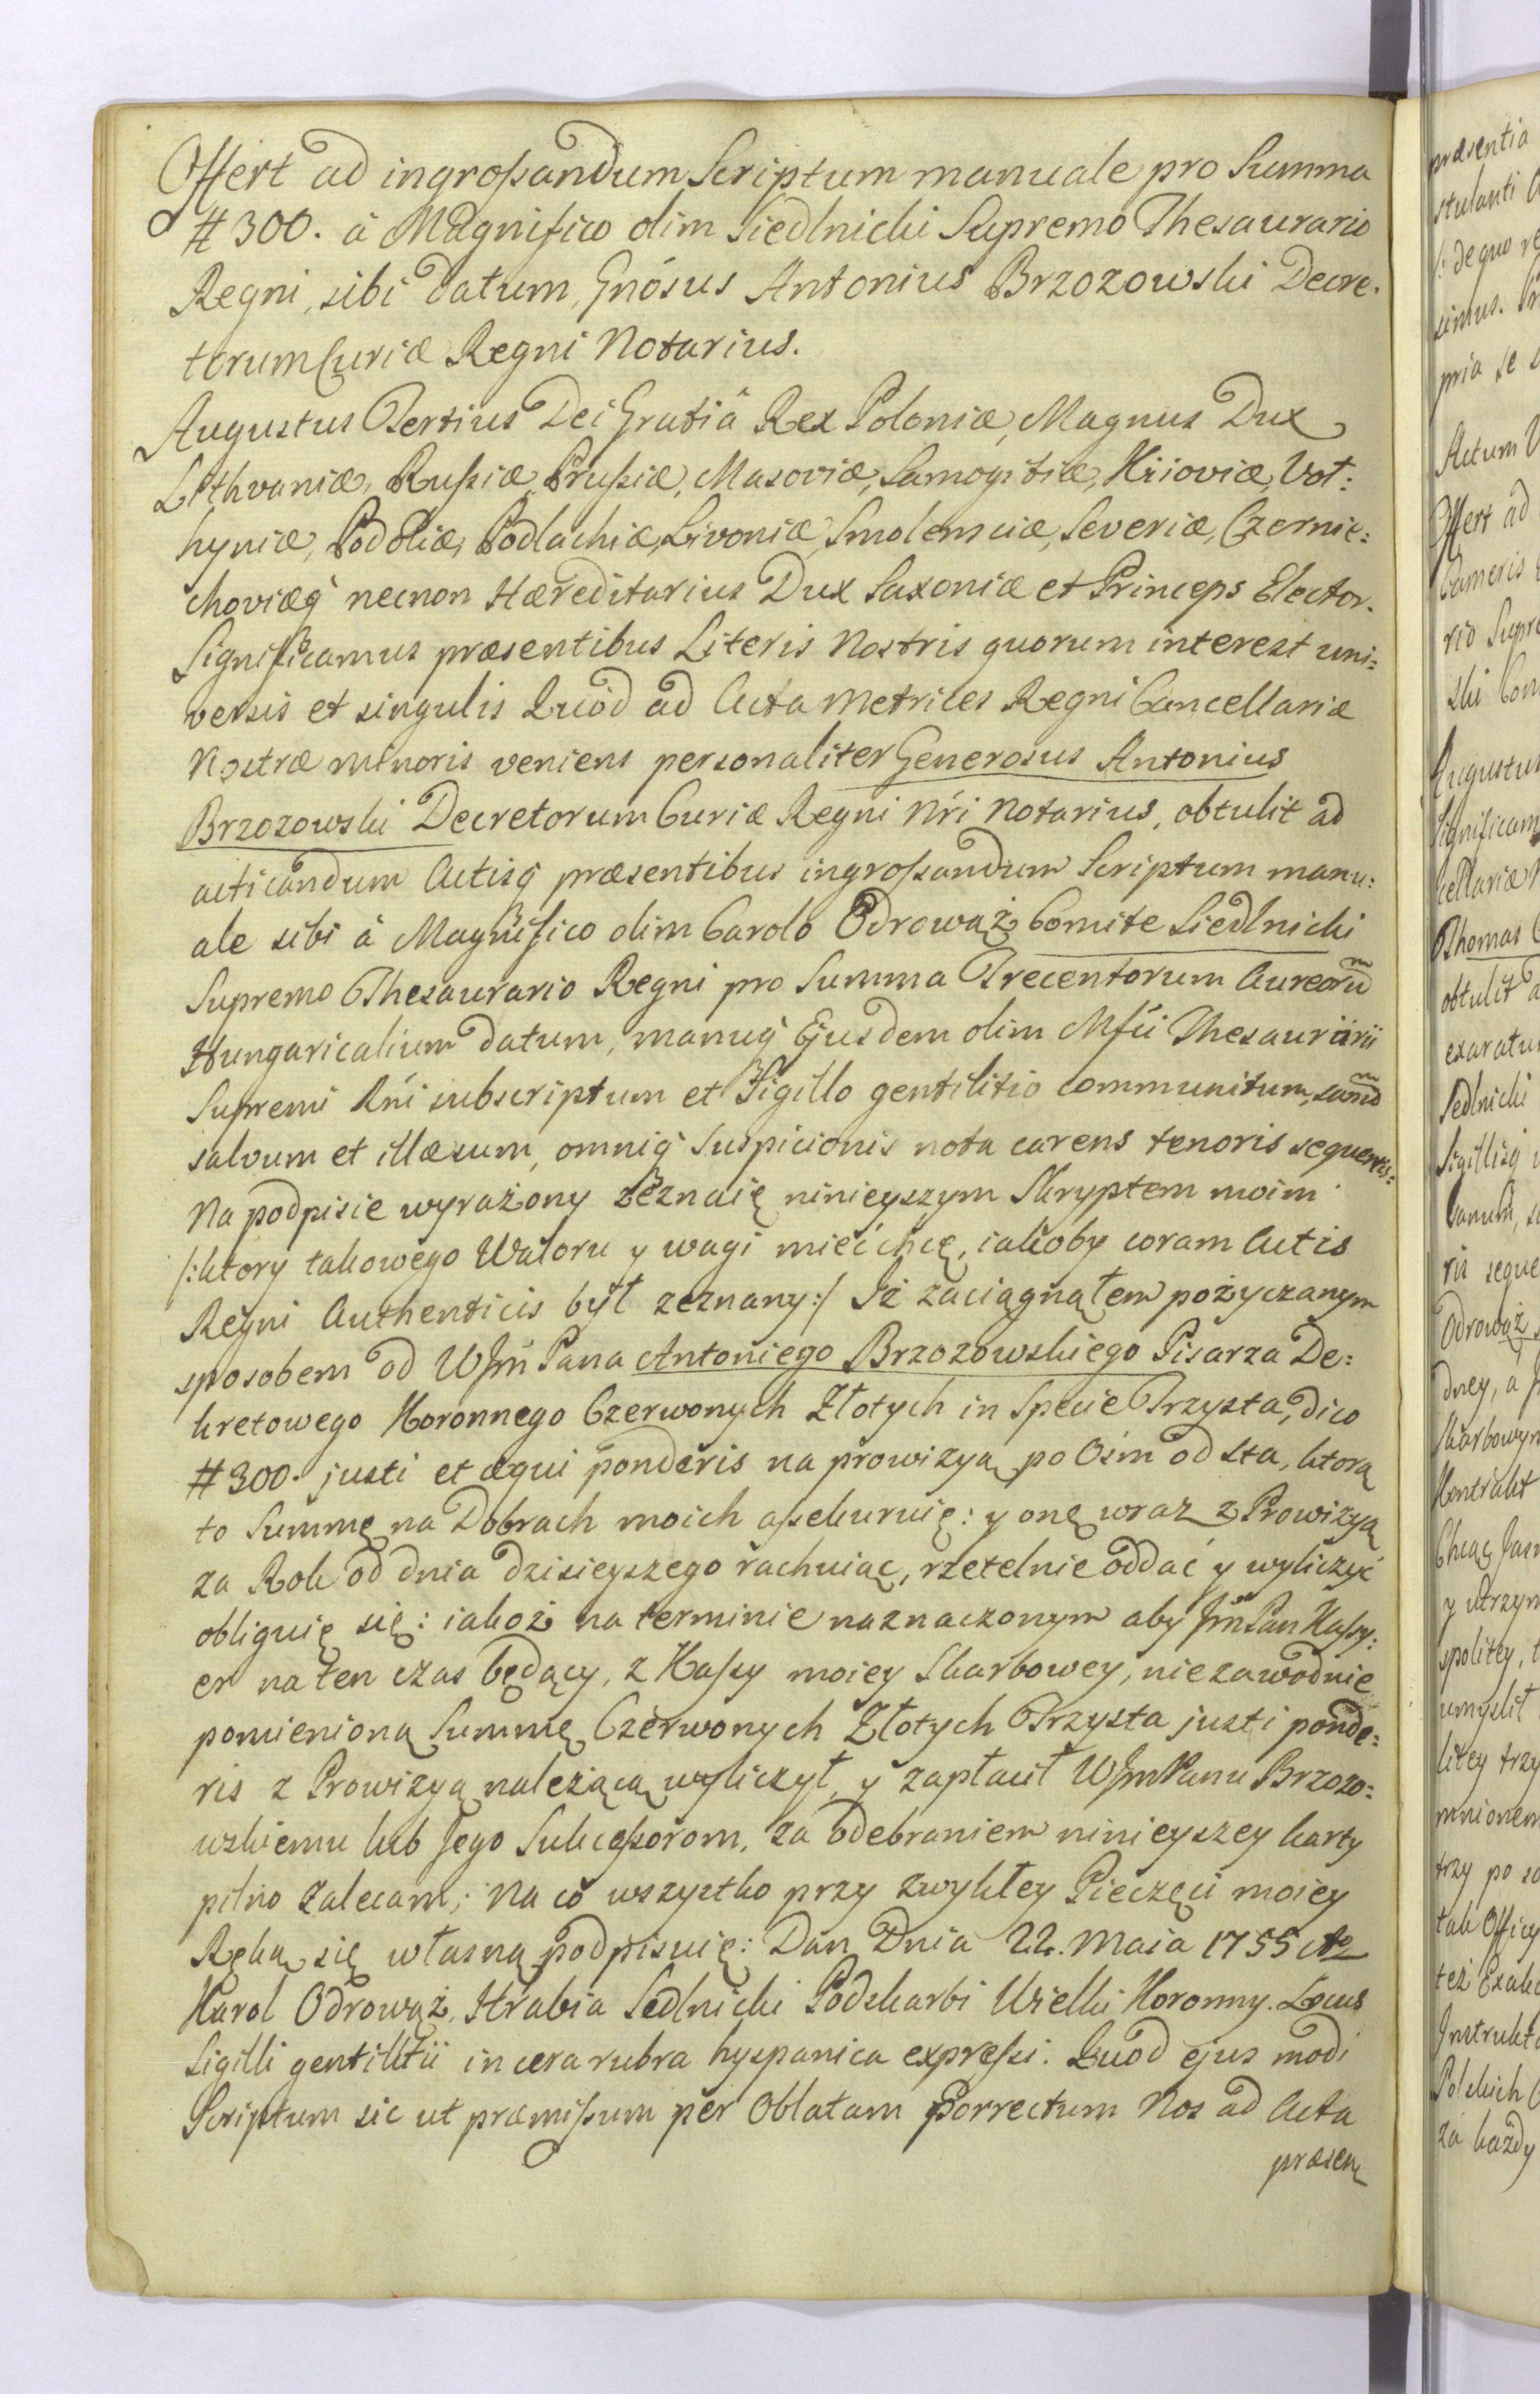 Offert ad ingroſsandum Scriptum manuale pro Summa
# 300. â Magnifico olim Siedlnicki Supremo Thesaurario
Regni, sibi datum, Gnõsus Antonius Brzozowski Decre-
torum Curiæ Regni Notarius.
Augustus Tertius Dei Gratiâ Rex Poloniæ, Magnus Dux
Lithvaniæ, Ruſsiæ, Pruſsiæ, Masoviæ, Samogitiæ, Kiioviæ, Vol:
hyniæ, Podoliæ, Podlachiæ, Livoniæ, Smolensciæ, Severiæ, Czernie:
choviæq̀ necnon Hæreditarius Dux Saxoniæ et Princeps Elector.
Significamus præsentibus Literis Nostris quorum interest uni:
versis et singulis Quòd ad Acta Metrices Regni Cancellariæ
Nostræ Minoris veniens personaliter Generosus Antonius
Brzozowski Decretorum Curiæ Regni Nri Notarius, obtulit ad
acticandum Actisq̀ præsentibus ingroſsandum Scriptum manu:
ale sibi à Magnifico olim Carolo Odrowąż Comite Siedlnicki
Supremo Thesaurario Regni pro Summa Trecentorum Aureorũ
Hungaricalium datum, manuq̀ Ejusdem olim Mfci Thesaurarii
Supremi Rni subscriptum et Sigillo gentilitio communitum, sanũ
salvum et illæsum, omniq̀ Suspicionis nota carens tenoris sequentis:
Na podpisie wyrażony zeznaię ninieyszym Skryptem moim
/:ktory takowego Waloru y wagi mieć chcę, iakoby coram Actis
Regni Authenticis był zeznany:/ Iż zaciągnąłem pożyczanym
sposobem od WJm̃ Pana Antoniego Brzozowskiego Pisarza De:
kretowego Koronnego Czerwonych Złotych in Specie Trzysta, dico
# 300. justi et æqui ponderis na prowizyą po Ośm od sta, ktorą
to Summę na Dobrach moich aſsekuruię: y onę wraz z Prowizyą
za Rok od dnia dzisieyszego rachuiąc, rzetelnie oddać y wyliczyć
obliguię się: iakoż na terminie naznaczonym aby Jm̃ Pan Kaſsy:
er na ten czas będący, z Kaſsy moiey Skarbowey, niezawodnie
pomienioną Summę Czerwonych Złotych Trzysta justi ponde:
ris z Prowizyą należącą wyliczył, y zapłacił WJm Panu Brzozo:
wskiemu lub Jego Sukceſsorom, za odebraniem ninieyszey karty
pilno zalecam; Na co wszystko przy zwykłey Pieczęci moiey
Ręką się własną podpisuię: Dan Dnia 22. Maia 1755 Ao
Karol Odrowąż, Hrabia Sedlnicki Podskarbi Wielki Koronny. Locus
Sigilli gentilitii in cera rubra hyspanica expreſsi. Quod ejus modi
Scriptum sic ut præmiſsum per Oblatam Porrectum Nos ad Acta
præsen
præsentia
stulanti
/: de quo re
simus.
pria se
Actum
Offert ad
Cameris
rio Supre
ski Com
Augustus
Significam
cellariæ
Thomas
obtulit a
exaratum
Sedlnicki
Sigillisq̀
sanum, s
ris seque
Odrowąż
dney, a
Skarbowym
Kontrakt
Chcąc Jasn
y utrzym
spolitey, t
umyslił
litey trzy
mnionem
trzy po so
tak Officy
też Exak
Instrukt
Polskich
za każdy